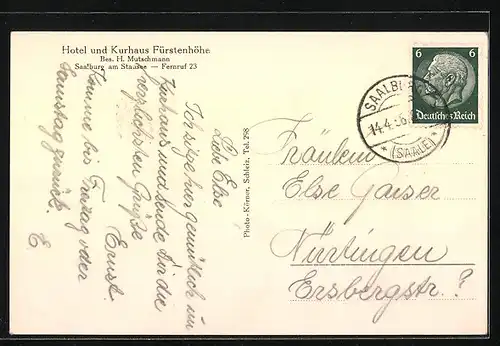 Hotel und Kurhaus Fürstenhöhe
Bes. H. Mutschmann
Saalburg am Stausee — Fernruf 23
Liebe Else
Ich sitze hier gemütlich im
Kurhaus und sende Dir die
herzlichsten Grüße
Ernst
Komme bis Freitag oder
Samstag zurück.
E
Photo-Körner, Schleiz, Tel. 298
6 6
Deutsches Reich
SAALBURG
14.4.36
* (SAALE) *
Fräulein
Else Gaiser
Nürtingen
Ersbergstr. ?